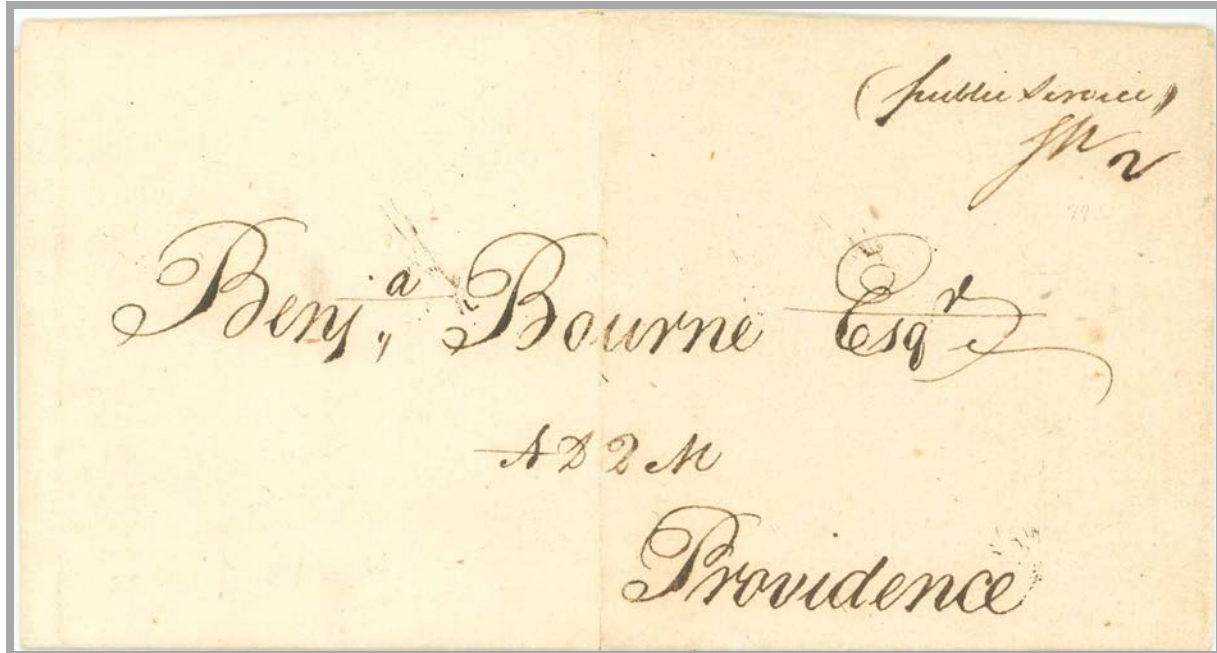 (public Service)
Benjª„ Bourne Esqʳ
A D 2 M
Providence